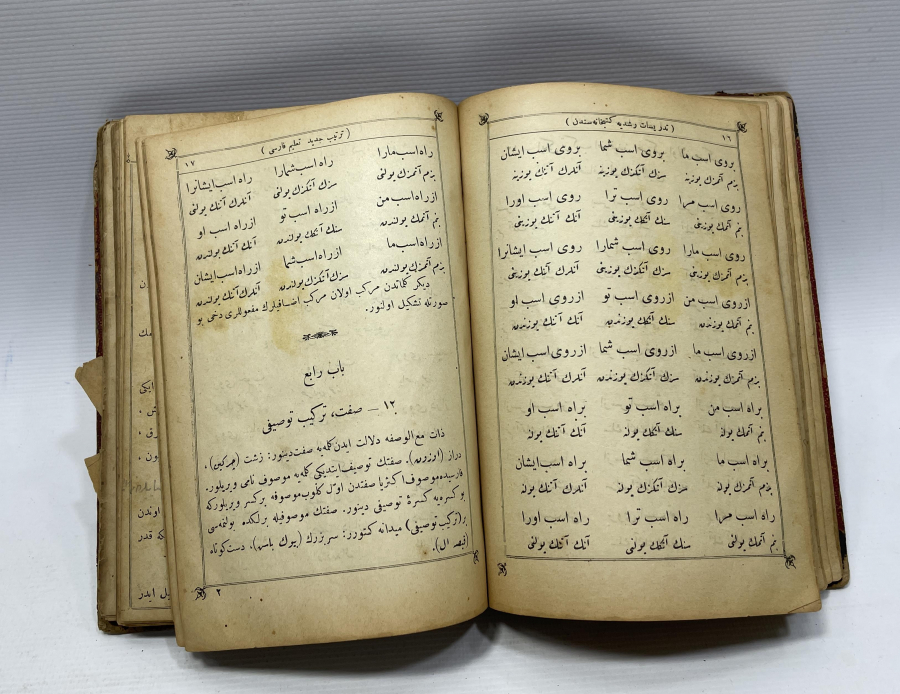 ١٦ ( تدریسات رشدیه کتبخانه‌سندن )
بروی اسب ما بروی اسب شما بروی اسب ایشان
بزم آتمزك یوزینه سزك آتكزك یوزینه آنلرك آتنك یوزینه
روی اسب مرا روی اسب ترا روی اسب اورا
بنم آتمك یوزینی سنك آتكك یوزینی آنك آتنك یوزینی
روی اسب مارا روی اسب شمارا روی اسب ایشانرا
بزم آتمزك یوزینی سزك آتكزك یوزینی آنلرك آتنك یوزینی
ازروی اسب من ازروی اسب تو ازروی اسب او
بنم آتمك یوزندن سنك آتكك یوزندن آنك آتنك یوزندن
ازروی اسب ما ازروی اسب شما ازروی اسب ایشان
بزم آتمزك یوزندن سزك آتكزك یوزندن آنلرك آتنك یوزندن
براه اسب من براه اسب تو براه اسب او
بنم آتمك یولنه سنك آتكك یولنه آنك آتنك یولنه
براه اسب ما براه اسب شما براه اسب ایشان
بزم آتمزك یولنه سزك آتكزك یولنه آنلرك آتنك یولنه
راه اسب مرا راه اسب ترا راه اسب اورا
بنم آتمك یولنی سنك آتكك یولنی آنك آتنك یولنی
( ترتیب جدید تعلیم فارسی ) ١٧
راه اسب مارا راه اسب شمارا راه اسب ایشانرا
بزم آتمزك یولنی سزك آتكزك یولنی آنلرك آتنك یولنی
ازراه اسب من ازراه اسب تو ازراه اسب او
بنم آتمك یولندن سنك آتكك یولندن آنك آتنك یولندن
ازراه اسب ما ازراه اسب شما ازراه اسب ایشان
بزم آتمزك یولندن سزك آتكزك یولندن آنلرك آتنك یولندن
دیگر كلماتدن مركب اولان مركب اضافیلرك مفعوللری دخی بو
صورتله تشكیل اولنور.
باب رابع
١٢ – صفت، تركیب توصیفی
ذات مع الوصفه دلالت ایدن كلمه‌یه صفت دینور: زشت (چركین)،
دراز (اوزون). صفتك توصیف ایتدیكی كلمه‌یه موصوف نامی ویریلور.
فارسیده موصوف اكثریا صفتدن اول كلوب موصوفه بركسر ویریلوركه
بو كسره‌یه كسرهٔ توصیفی دینور. صفتك موصوفیله برلكده بولنمه‌سی
بر(تركیب توصیفی) میدانه كتورر: سر بزرك (بیوك باش)، دست كوتاه
(قیصه ال).
٢